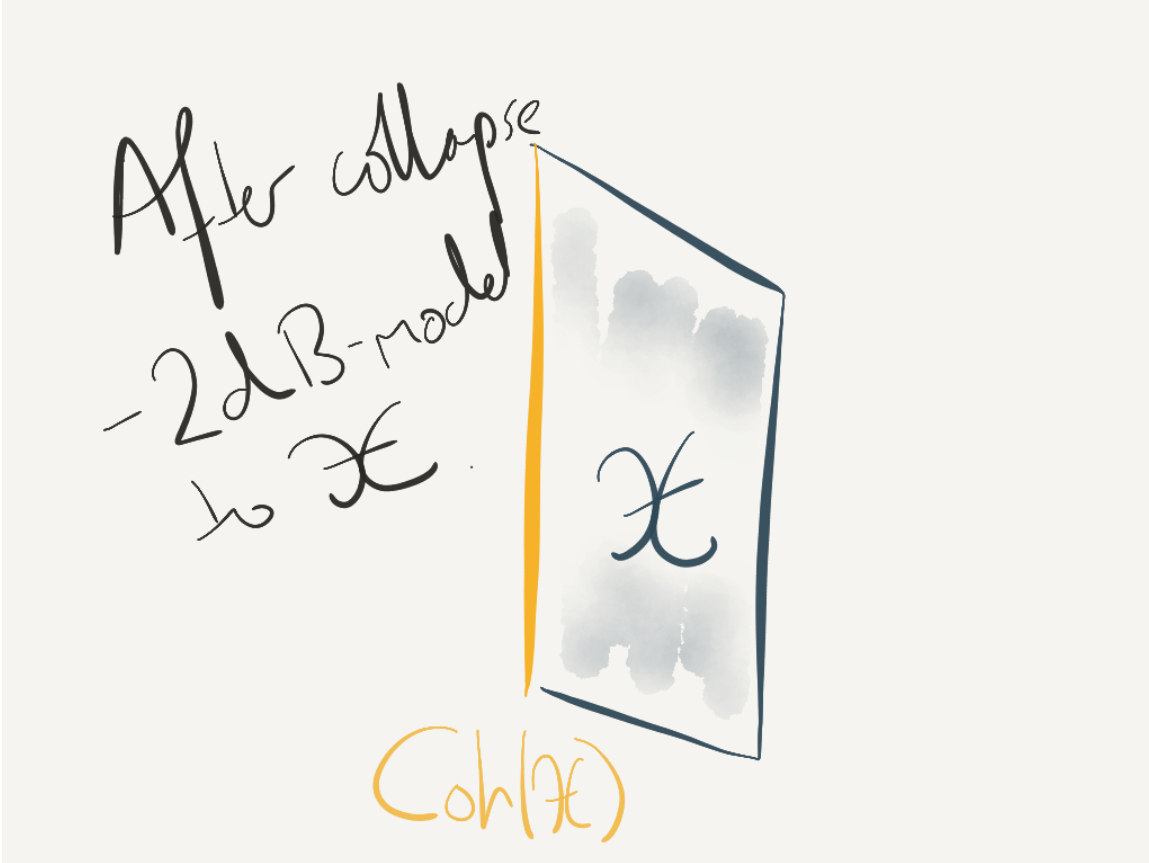 After collapse
- 2d B-model
to 𝒳.
𝒳
Coh(𝒳)